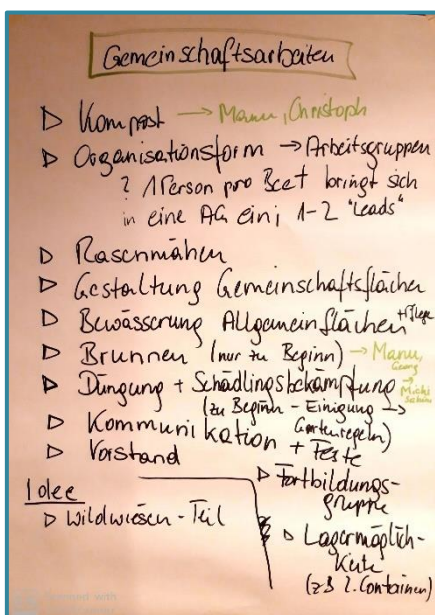 Gemeinschaftsarbeiten
▷ Kompost → Manu, Christoph
▷ Organisationsform → Arbeitsgruppen
? 1 Person pro Beet bringt sich
in eine AG ein; 1-2 "Leads"
▷ Rasenmähen
▷ Gestaltung Gemeinschaftsflächen
▷ Bewässerung Allgemeinflächen + Pflege
▷ Brunnen (nur zu Beginn) → Manu,
Georg
▷ Düngung + Schädlingsbekämpfung →
Michi
(zu Beginn - Einigung →
Gartenregeln)
▷ Kommunikation + Feste
▷ Vorstand
▷ Fortbildungs-
gruppe
Idee
▷ Wildwiesen-Teil
▷ Lagermöglich-
keite
(zB 2. Container)